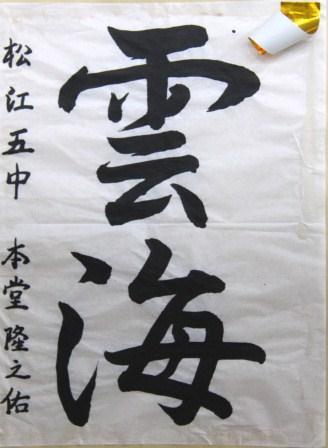 雲海
松江五中 本堂隆之佑